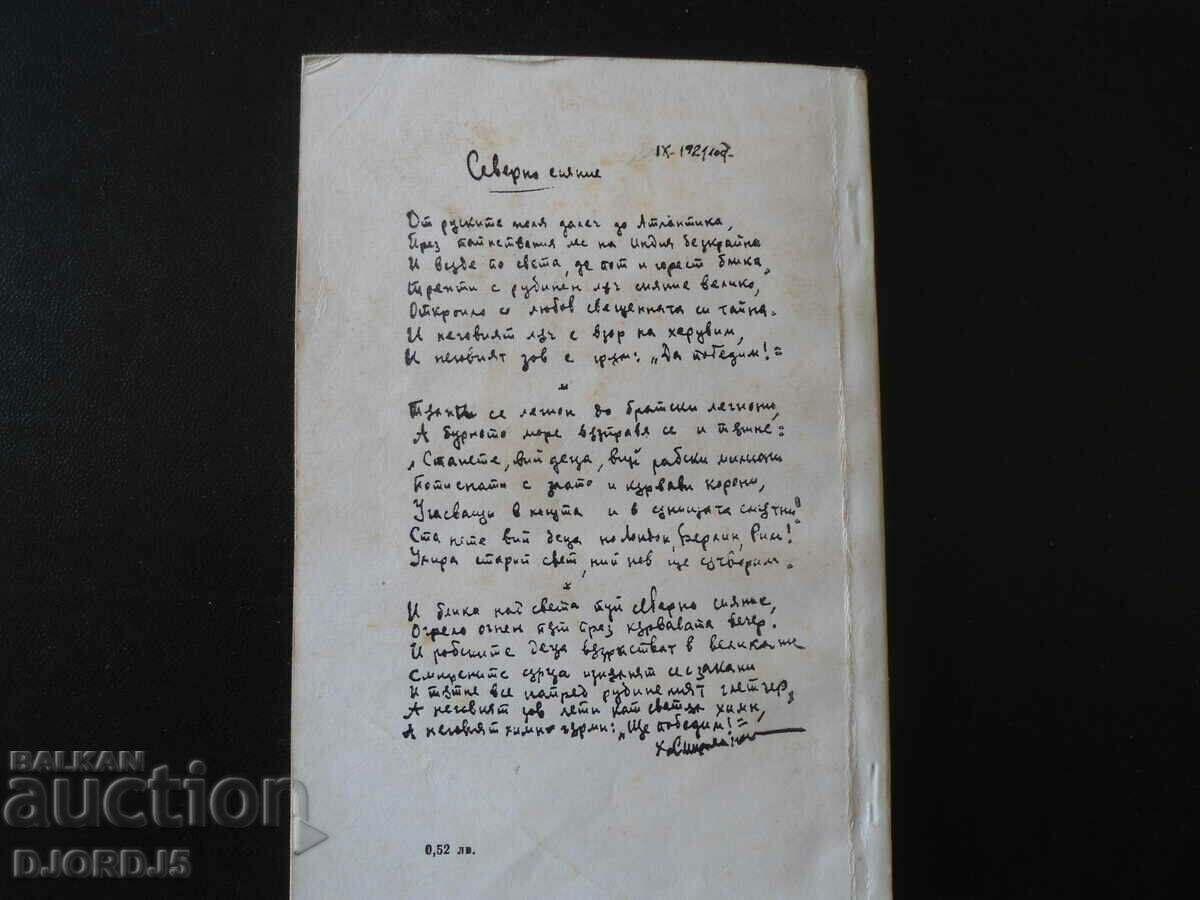 IX-1921 год.
Северно сияние
От руските поля далеч до Атлантика,
През тайнствения лес на Индия безкрайна
И везде по света, де пот и горест блика,
Трепти с рубинен лъч сияние велико,
Открило со любов свещенната си тайна.
И неговият лъч е взор на херувим,
И неговият зов е гръм: „Да победим!"
*
се легион до братски легиони,
А бурното море възправя се и тътне:
„Станете, вий деца, вий рабски милиони
Потиснати с злато и кървави корони,
Угасващи в нощта и в сънищата смътни!
Станете вий деца на Лондон, Берлин, Рим!
Умира старий свет, ний нов ще сътворим."
*
И блика над света туй северно сияние,
Огрело огнен път през кървавата вечер.
И робските деца възръстват в великани
Смирените сърца изпълнят се с закани
И тътне все напред рубиненият глетчер,
А неговият зов лети кат светъл химн,
А неговият химн гърми: „Ще победим!"
0,52 лв.
BALKAN
auction
DJORD_J5